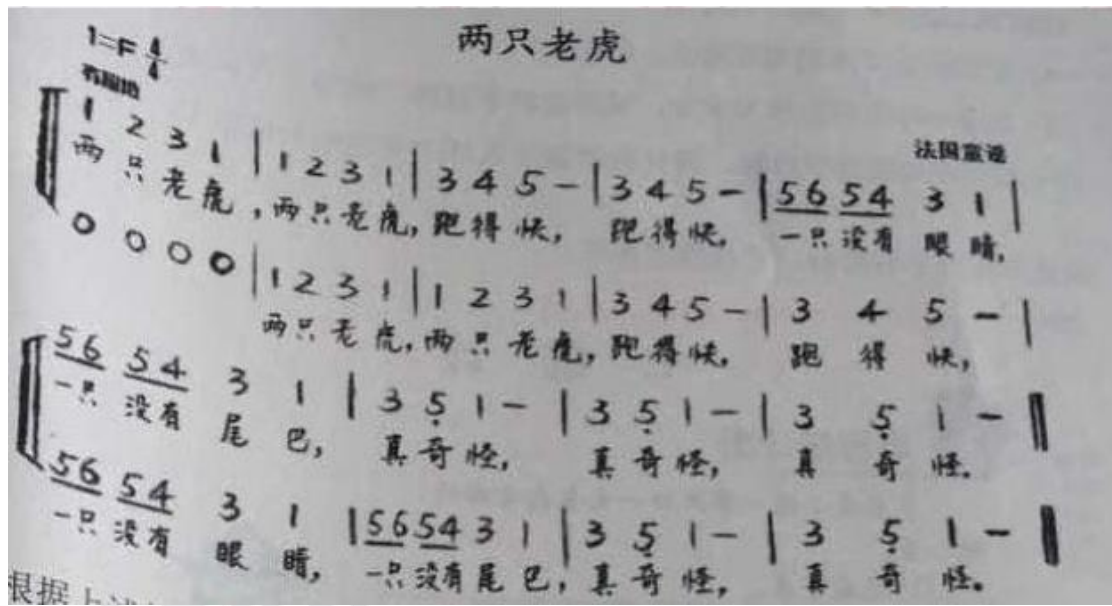 两只老虎
1=F 4/4
法国童谣
1 2 3 1 | 1 2 3 1 | 3 4 5 - | 3 4 5 - | 56 54 3 1 |
两只老虎，两只老虎，跑得快， 跑得快， 一只没有眼睛，
0 0 0 0 | 1 2 3 1 | 1 2 3 1 | 3 4 5 - | 3 4 5 - |
两只老虎，两只老虎，跑得快， 跑得快，
56 54 3 1 | 3 5̣ 1 - | 3 5̣ 1 - | 3 5̣ 1 - ‖
一只没有尾巴， 真奇怪， 真奇怪， 真奇怪。
56 54 3 1 | 56 54 3 1 | 3 5̣ 1 - | 3 5̣ 1 - ‖
一只没有眼睛， 一只没有尾巴，真奇怪， 真奇怪。
根据上述